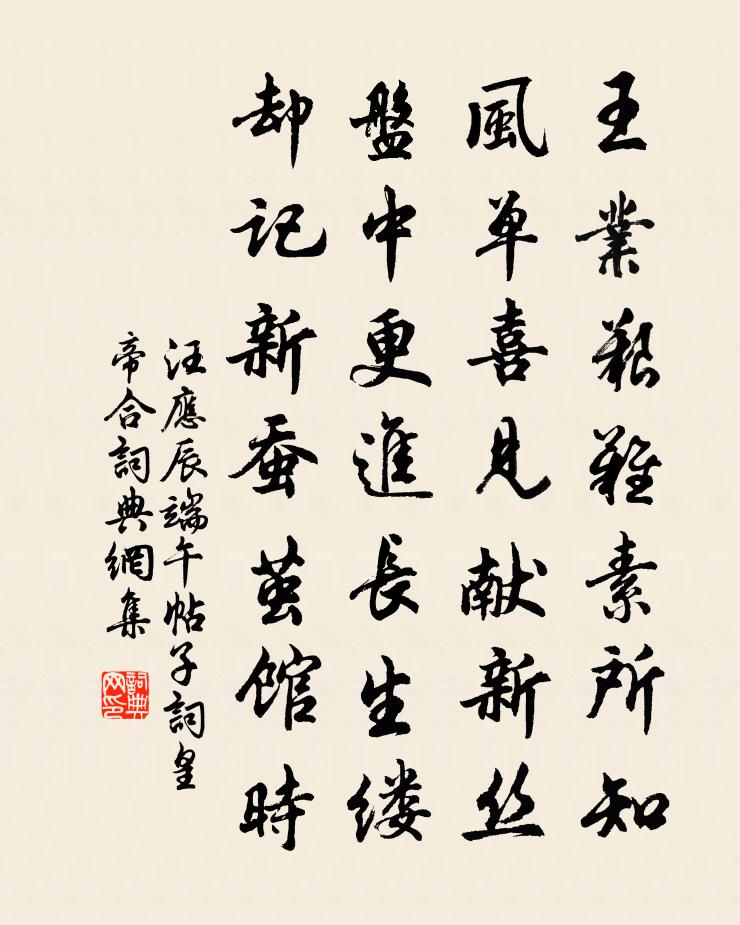 王業艱難素所知
風单喜見献新丝
盤中更進長生缕
却記新蚕茧馆時
汪應辰端午帖子詞皇
帝合詞典網集
詞典网印